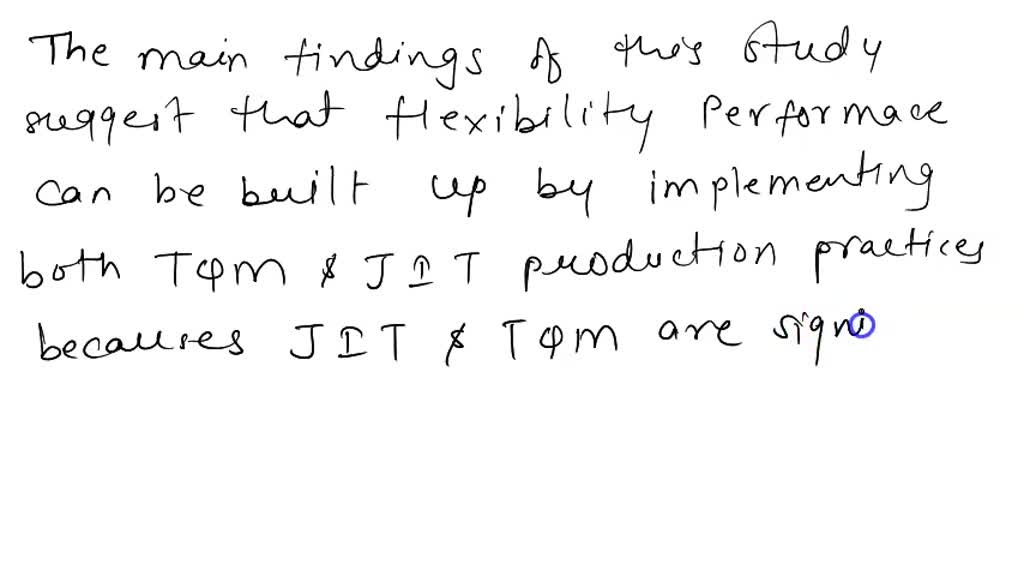 The main findings of this study
suggest that flexibility Performace
can be built up by implementing
both TQM & JIT production practices
becauses JIT & TQM are signi